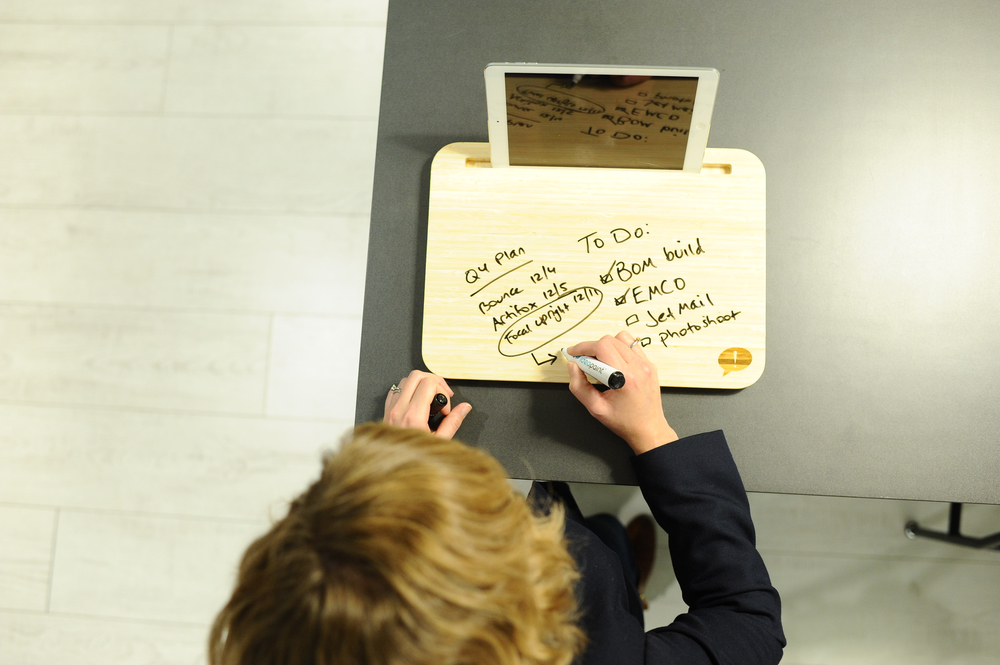 Q4 Plan
Bounce 12/4
Artifox 12/5
Focal upright 12/11
To Do:
BOM build
EMCO
Jet Mail
photoshoot